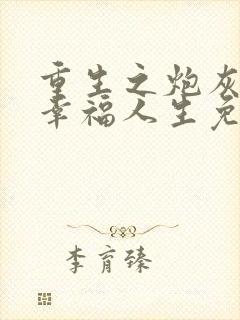 重生之炮灰
幸福人生免
李育臻